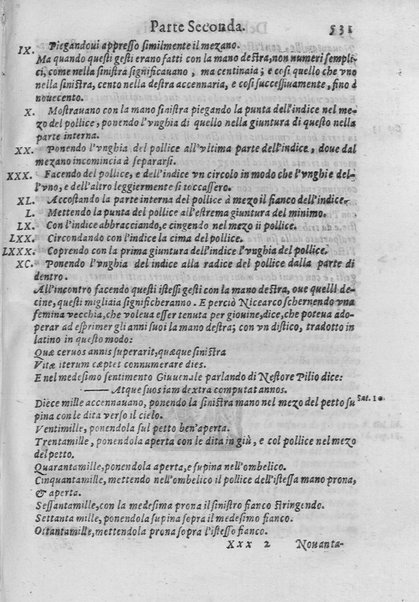 Parte Seconda. 531
IX. Piegandoui appresso similmente il mezano.
Ma quando questi gesti erano fatti con la mano destra, non numeri sempli-
ci, come nella sinistra significauano, ma centinaia; e cosi quello che vno
nella sinistra, cento nella destra accennaria, e cosi successiuamente, fino à
nouecento.
X. Mostrauano con la mano sinistra piegando la punta dell'indice nel me-
zo del pollice, ponendo l'vnghia di quello nella giuntura di questo nella
parte interna.
XX. Ponendo l'vnghia del pollice all'vltima parte dell'indice, doue dal
mezano incomincia à separarsi.
XXX. Facendo del pollice, e dell'indice vn circolo in modo che l'vnghie del-
l'vno, e dell'altro leggiermente si toccassero.
XL. Accostando la parte interna del pollice à mezo il fianco dell'indice.
L. Mettendo la punta del pollice all'estrema giuntura del minimo.
LX. Con l'indice abbracciando, e cingendo nel mezo ii pollice.
LXX. Circondando con l'indice la cima del pollice.
LXXX. Coprendo con la prima giuntura dell'indice l'vnghia del pollice.
XC. Ponendo l'vnghia del indice alla radice del pollice dalla parte di
dentro.
All'incontro facendo questi istessi gesti con la mano destra, oue quelli de-
cine, questi migliaia significheranno. E perciò Nicearco schernendo vna
femina vecchia, che voleua esser tenuta per giouine, dice, che poteua ado-
perar ad esprimer gli anni suoi la mano destra; con vn distico, tradotto in
latino in questo modo:
Quæ ceruos annis superarit, quæque sinistra
Vitæ iterum cæptes connumerare dies.
E nel medesimo sentimento Giuuenale parlando di Nestore Pilio dice:
—— Atque suos iam dextra computat annos.
Sat. 10
Diece mille accennauano, ponendo la sinistra mano nel mezo del petto su
pina con le dita verso il cielo.
Ventimille, ponendola sul petto ben'aperta.
Trentamille, ponendola aperta con le dita in giù, e col pollice nel mezo
del petto.
Quarantamille, ponendola aperta, e supina nell'ombelico.
Cinquantamille, mettendo nell'ombelico il pollice dell'istessa mano prona,
& aperta.
Sessantamille, con la medesima prona il sinistro fianco stringendo.
Settanta mille, ponendola supina sopra il medesimo fianco.
Ottantamille, mettendola prona sopra l'istesso fianco.
Xxx 2 Nouanta-